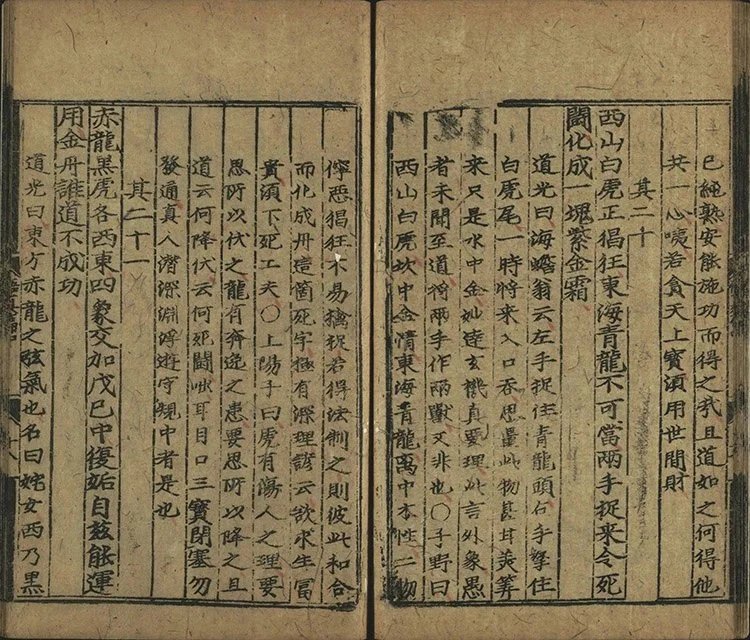 已純熟安能施功而得之哉且道如之何得他
共一心噫若貪天上寶須用世間財
其二十
西山白虎正猖狂東海青龍不可當兩手捉來令死
鬪化成一塊紫金霜
道光曰海蟾翁云左手捉住青龍頭右手拏住
白虎尾一時將來入口吞思量此物甚甘美筭
來只是水中金妙達玄機真要理此言外象愚
者未聞至道將兩手作兩獸又非也〇子野曰
西山白虎坎中金情東海青龍离中本性二物
儜惡猖狂不易擒捉若得法制之則彼此和合
而化成丹這箇死字極有深理諺云欲求生富
貴須下死工夫〇上陽子曰虎有傷人之理要
思所以伏之龍有奔逸之患要思所以降之且
道云何降伏云何死鬪咄耳目口三寶閉塞勿
發通真人潛深淵浮遊守規中者是也
其二十一
赤龍黑虎各西東四象交加戊己中復姤自玆能運
用金丹誰道不成功
道光曰東方赤龍之弦氣也名曰姹女西乃黑